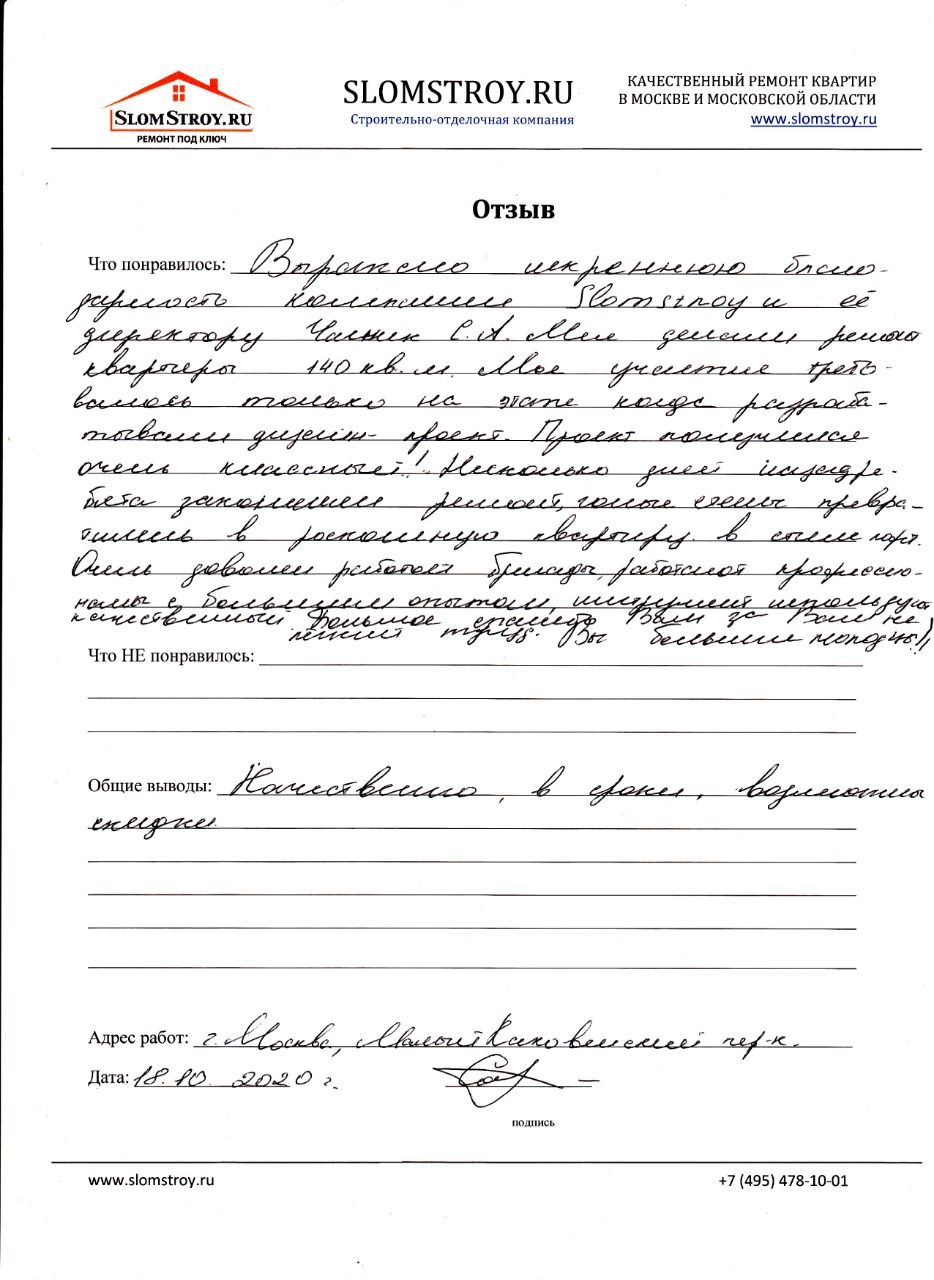 SLOMSTROY.RU
РЕМОНТ ПОД КЛЮЧ
SLOMSTROY.RU
Строительно-отделочная компания
КАЧЕСТВЕННЫЙ РЕМОНТ КВАРТИР
В МОСКВЕ И МОСКОВСКОЙ ОБЛАСТИ
www.slomstroy.ru
Отзыв
Что понравилось: Выражаю искреннюю благо-
дарность компании Slomstroy и её
директору С.А. Мне делали ремонт
квартиры 140 кв.м. Мое участие требо-
валось только на этапе когда разраба-
тывали дизайн-проект. Проект получился
очень классный! Несколько дней назад ре-
бята закончили ремонт, голые стены превра-
тились в роскошную квартиру в стиле
Очень доволен работой бригады, работают профессио-
налы с большим опытом, инструмент используют
качественный Большое спасибо Вам за Ваш не
легкий труд. Вы большие молодцы!!
Что НЕ понравилось:
Общие выводы: Качественно, в сроки, возможны
скидки.
Адрес работ: г. Москва, Малый пер-к.
Дата: 18.10.2020 г.
подпись
www.slomstroy.ru
+7 (495) 478-10-01